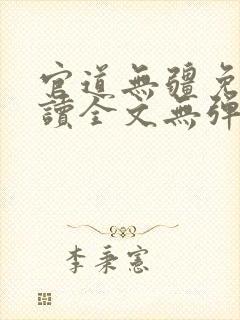 官道無疆免
讀全文無彈
李秉憲